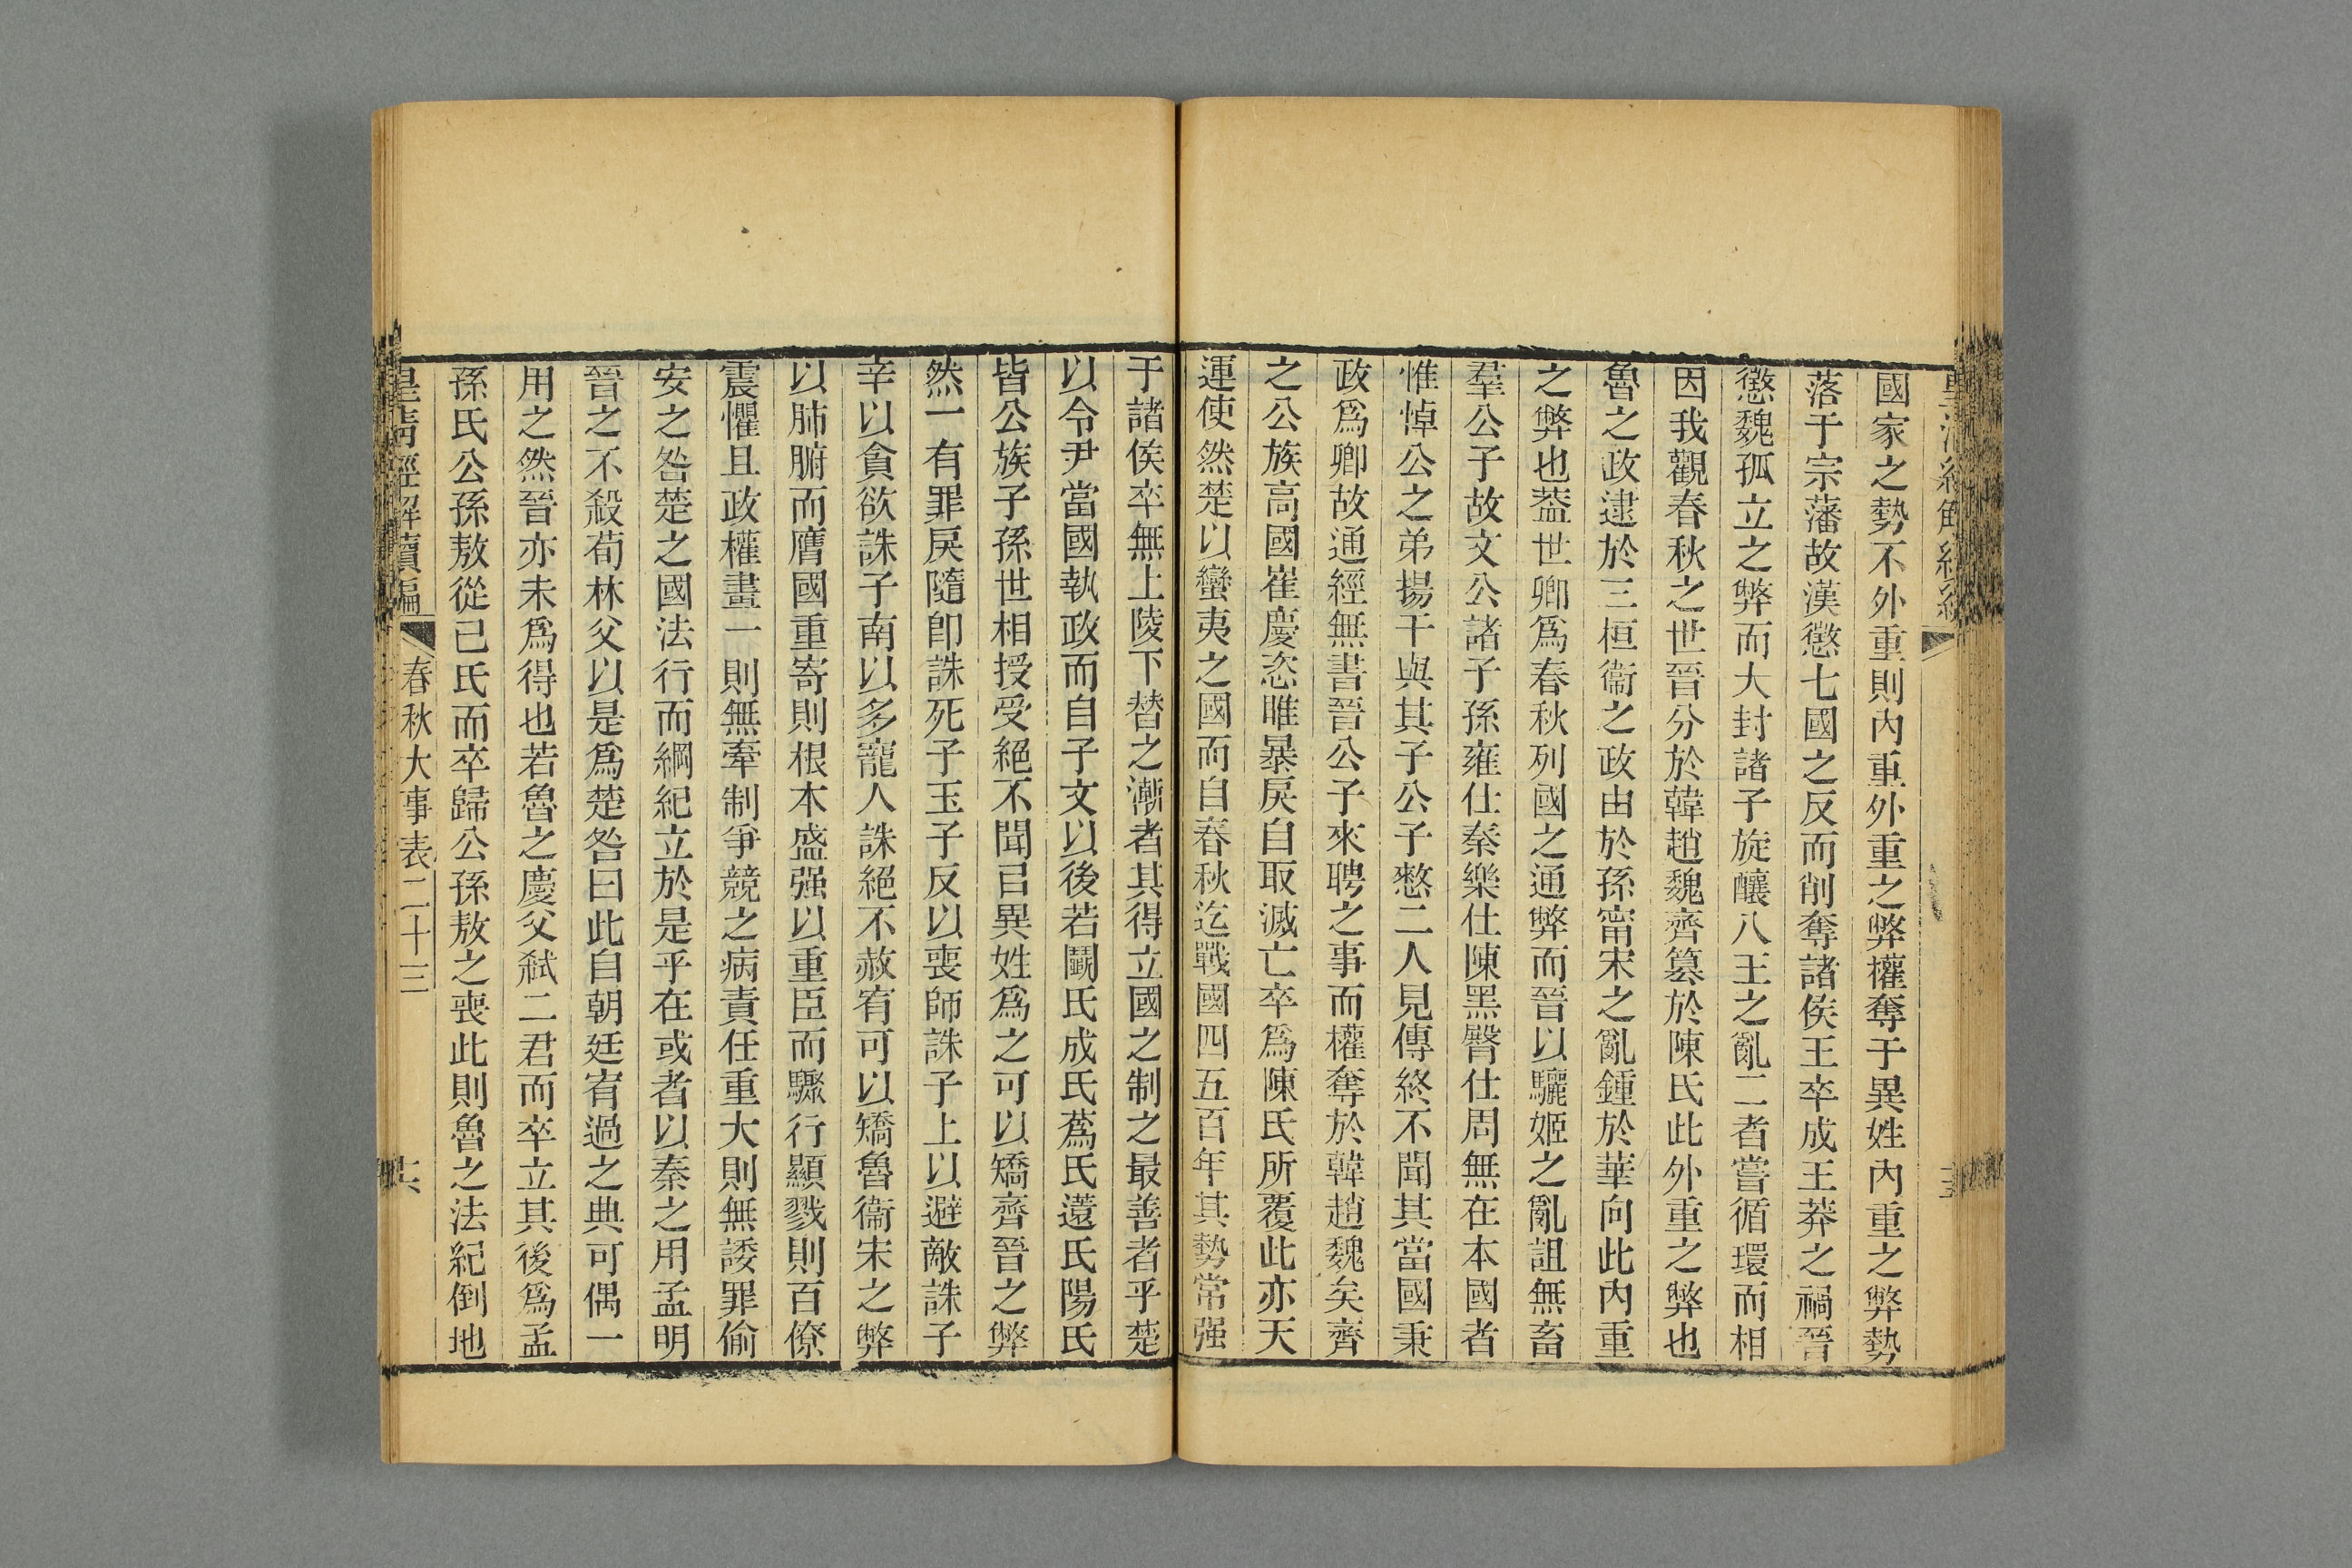 國家之勢不外重則內重外重之弊權奪于異姓內重之弊勢
落于宗藩故漢懲七國之反而削奪諸侯王卒成王莽之禍晉
懲魏孤立之弊而大封諸子旋釀八王之亂二者嘗循環而相
因我觀春秋之世晉分於韓趙魏齊簒於陳氏此外重之弊也
魯之政逮於三桓衞之政由於孫甯宋之亂鍾於華向此內重
之弊也葢世卿爲春秋列國之通弊而晉以驪姬之亂詛無畜
羣公子故文公諸子孫雍仕秦樂仕陳黑臀仕周無在本國者
惟悼公之弟揚干與其子公子憖二人見傳終不聞其當國秉
政爲卿故通經無書晉公子來聘之事而權奪於韓趙魏矣齊
之公族高國崔慶恣睢暴戾自取滅亡卒爲陳氏所覆此亦天
運使然楚以蠻夷之國而自春秋迄戰國四五百年其勢常强
于諸侯卒無上陵下替之漸者其得立國之制之最善者乎楚
以令尹當國執政而自子文以後若鬬氏成氏蔿氏薳氏陽氏
皆公族子孫世相授受絕不聞以異姓爲之可以矯齊晉之弊
然一有罪戾隨卽誅死子玉子反以喪師誅子上以避敵誅子
辛以貪欲誅子南以多寵人誅絕不赦宥可以矯魯衞宋之弊
以肺腑而膺國重寄則根本盛强以重臣而驟行顯戮則百僚
震懼且政權畫一則無牽制爭競之病責任重大則無諉罪偷
安之咎楚之國法行而綱紀立於是乎在或者以秦之用孟明
晉之不殺荀林父以是爲楚咎曰此自朝廷宥過之典可偶一
用之然晉亦未爲得也若魯之慶父弑二君而卒立其後爲孟
孫氏公孫敖從己氏而卒歸公孫敖之喪此則魯之法紀倒地
皇清經解續編 春秋大事表二十三